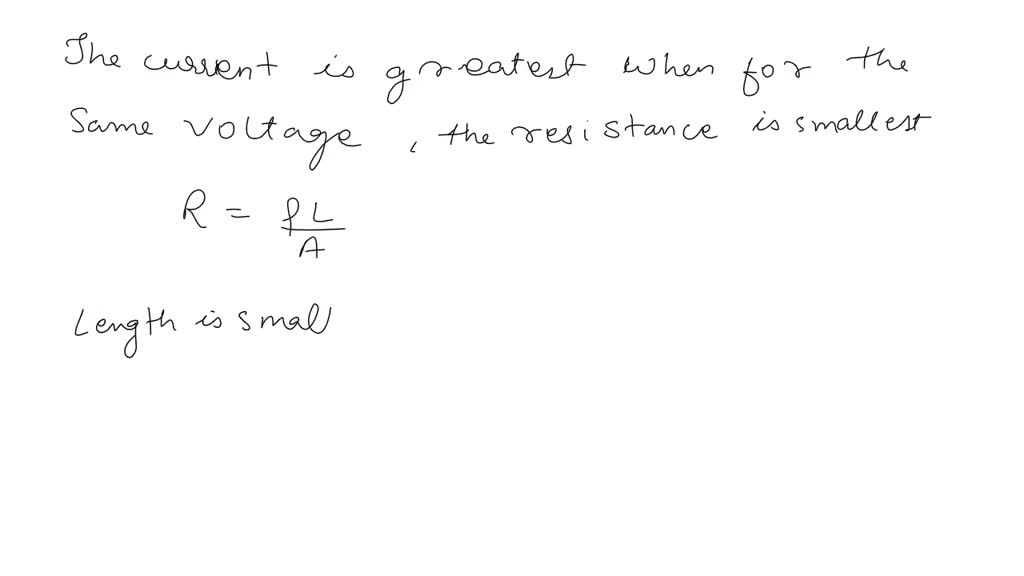 The current is greatest when for the
Same voltage, the resistance is smallest
R = ρL/A
Length is small